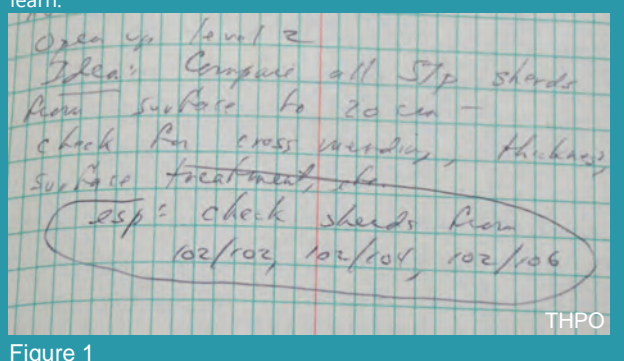 learn.
Open up level 2
Idea: Compare all STp sherds
from surface to 20 cm –
check for cross mending, thickness,
surface treatment,
esp: check sherds from
102/102, 102/104, 102/106
THPO
Figure 1